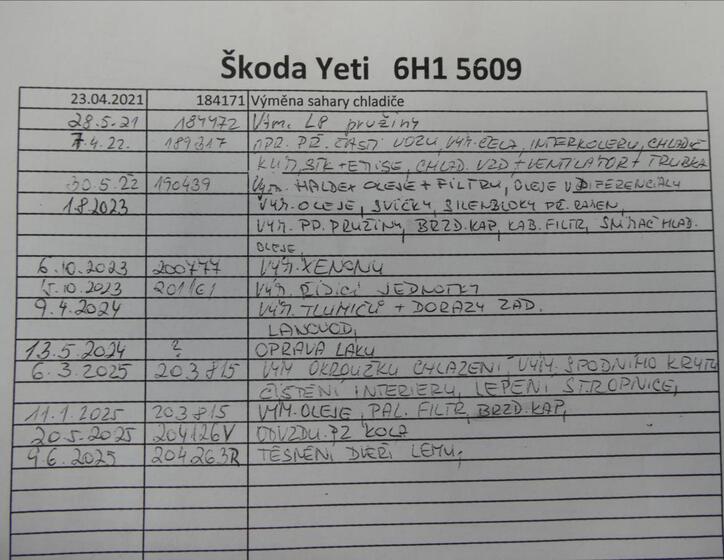 Škoda Yeti 6H1 5609
23.04.2021 184171 Výměna sahary chladiče
28.5.21 184472 Vým. LP pružiny
7.4.22. 189317 OPR. PŘ. ČÁSTI VOZU, VÝM. ČELA, INTERKOLERU, CHLADIČ
KLIM, STK + EMISE, CHLAD. VZD + VENTILÁTOR + TRUBKA
30.5.22 190439 Vým. HALDEX OLEJE + FILTRU, OLEJE V DIFERENCIÁLU
1.8.2023 VÝM. OLEJE, SVÍČKY, SILENBLOKY PŘ. RAMEN,
VÝM. PP. PRUŽINY, BRZD. KAP, KAB. FILTR, SNÍMAČ HLAD.
OLEJE,
6.10.2023 200777 VÝM. XENONU
15.10.2023 201161 VÝM. ŘÍDÍCÍ JEDNOTKY
9.4.2024 VÝM. TLUMIČŮ + DORAZY ZAD.
LANOVOD,
13.5.2024 ? OPRAVA LAKU
6.3.2025 203815 VÝM OKROUŽKU CHLAZENÍ, VÝM. SPODNÍHO KRYTU
ČIŠTĚNÍ INTERIERU, LEPENÍ STROPNICE,
11.1.2025 203815 VÝM. OLEJE, PAL. FILTR, BRZD. KAP,
20.5.2025 204126V ODVZDU. PZ KOLA
9.6.2025 204263R TĚSNĚNÍ DVEŘÍ LEMU,